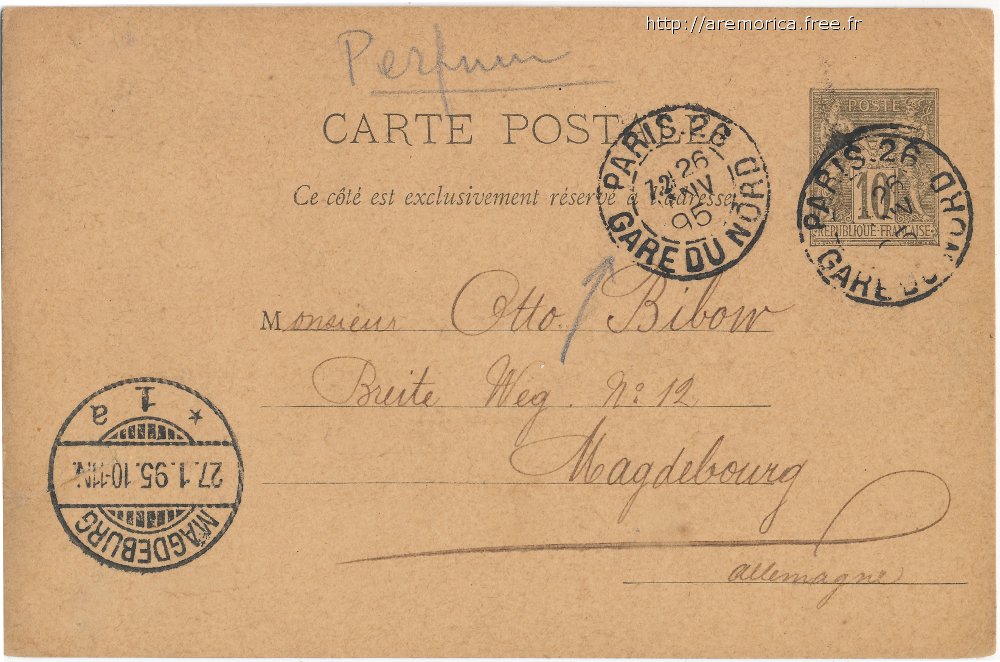 http://aremorica.free.fr
Perfum
CARTE POSTALE
Ce côté est exclusivement réservé à l'adresse
POSTE
10
RÉPUBLIQUE FRANÇAISE
PARIS-26
26
JANV
95
GARE DU NORD
PARIS-26
GARE DU NORD
Monsieur Otto Bibow
Breite Weg. No: 12
Magdebourg
allemagne
MAGDEBURG
27.1.95.10-11N.
* 1 a